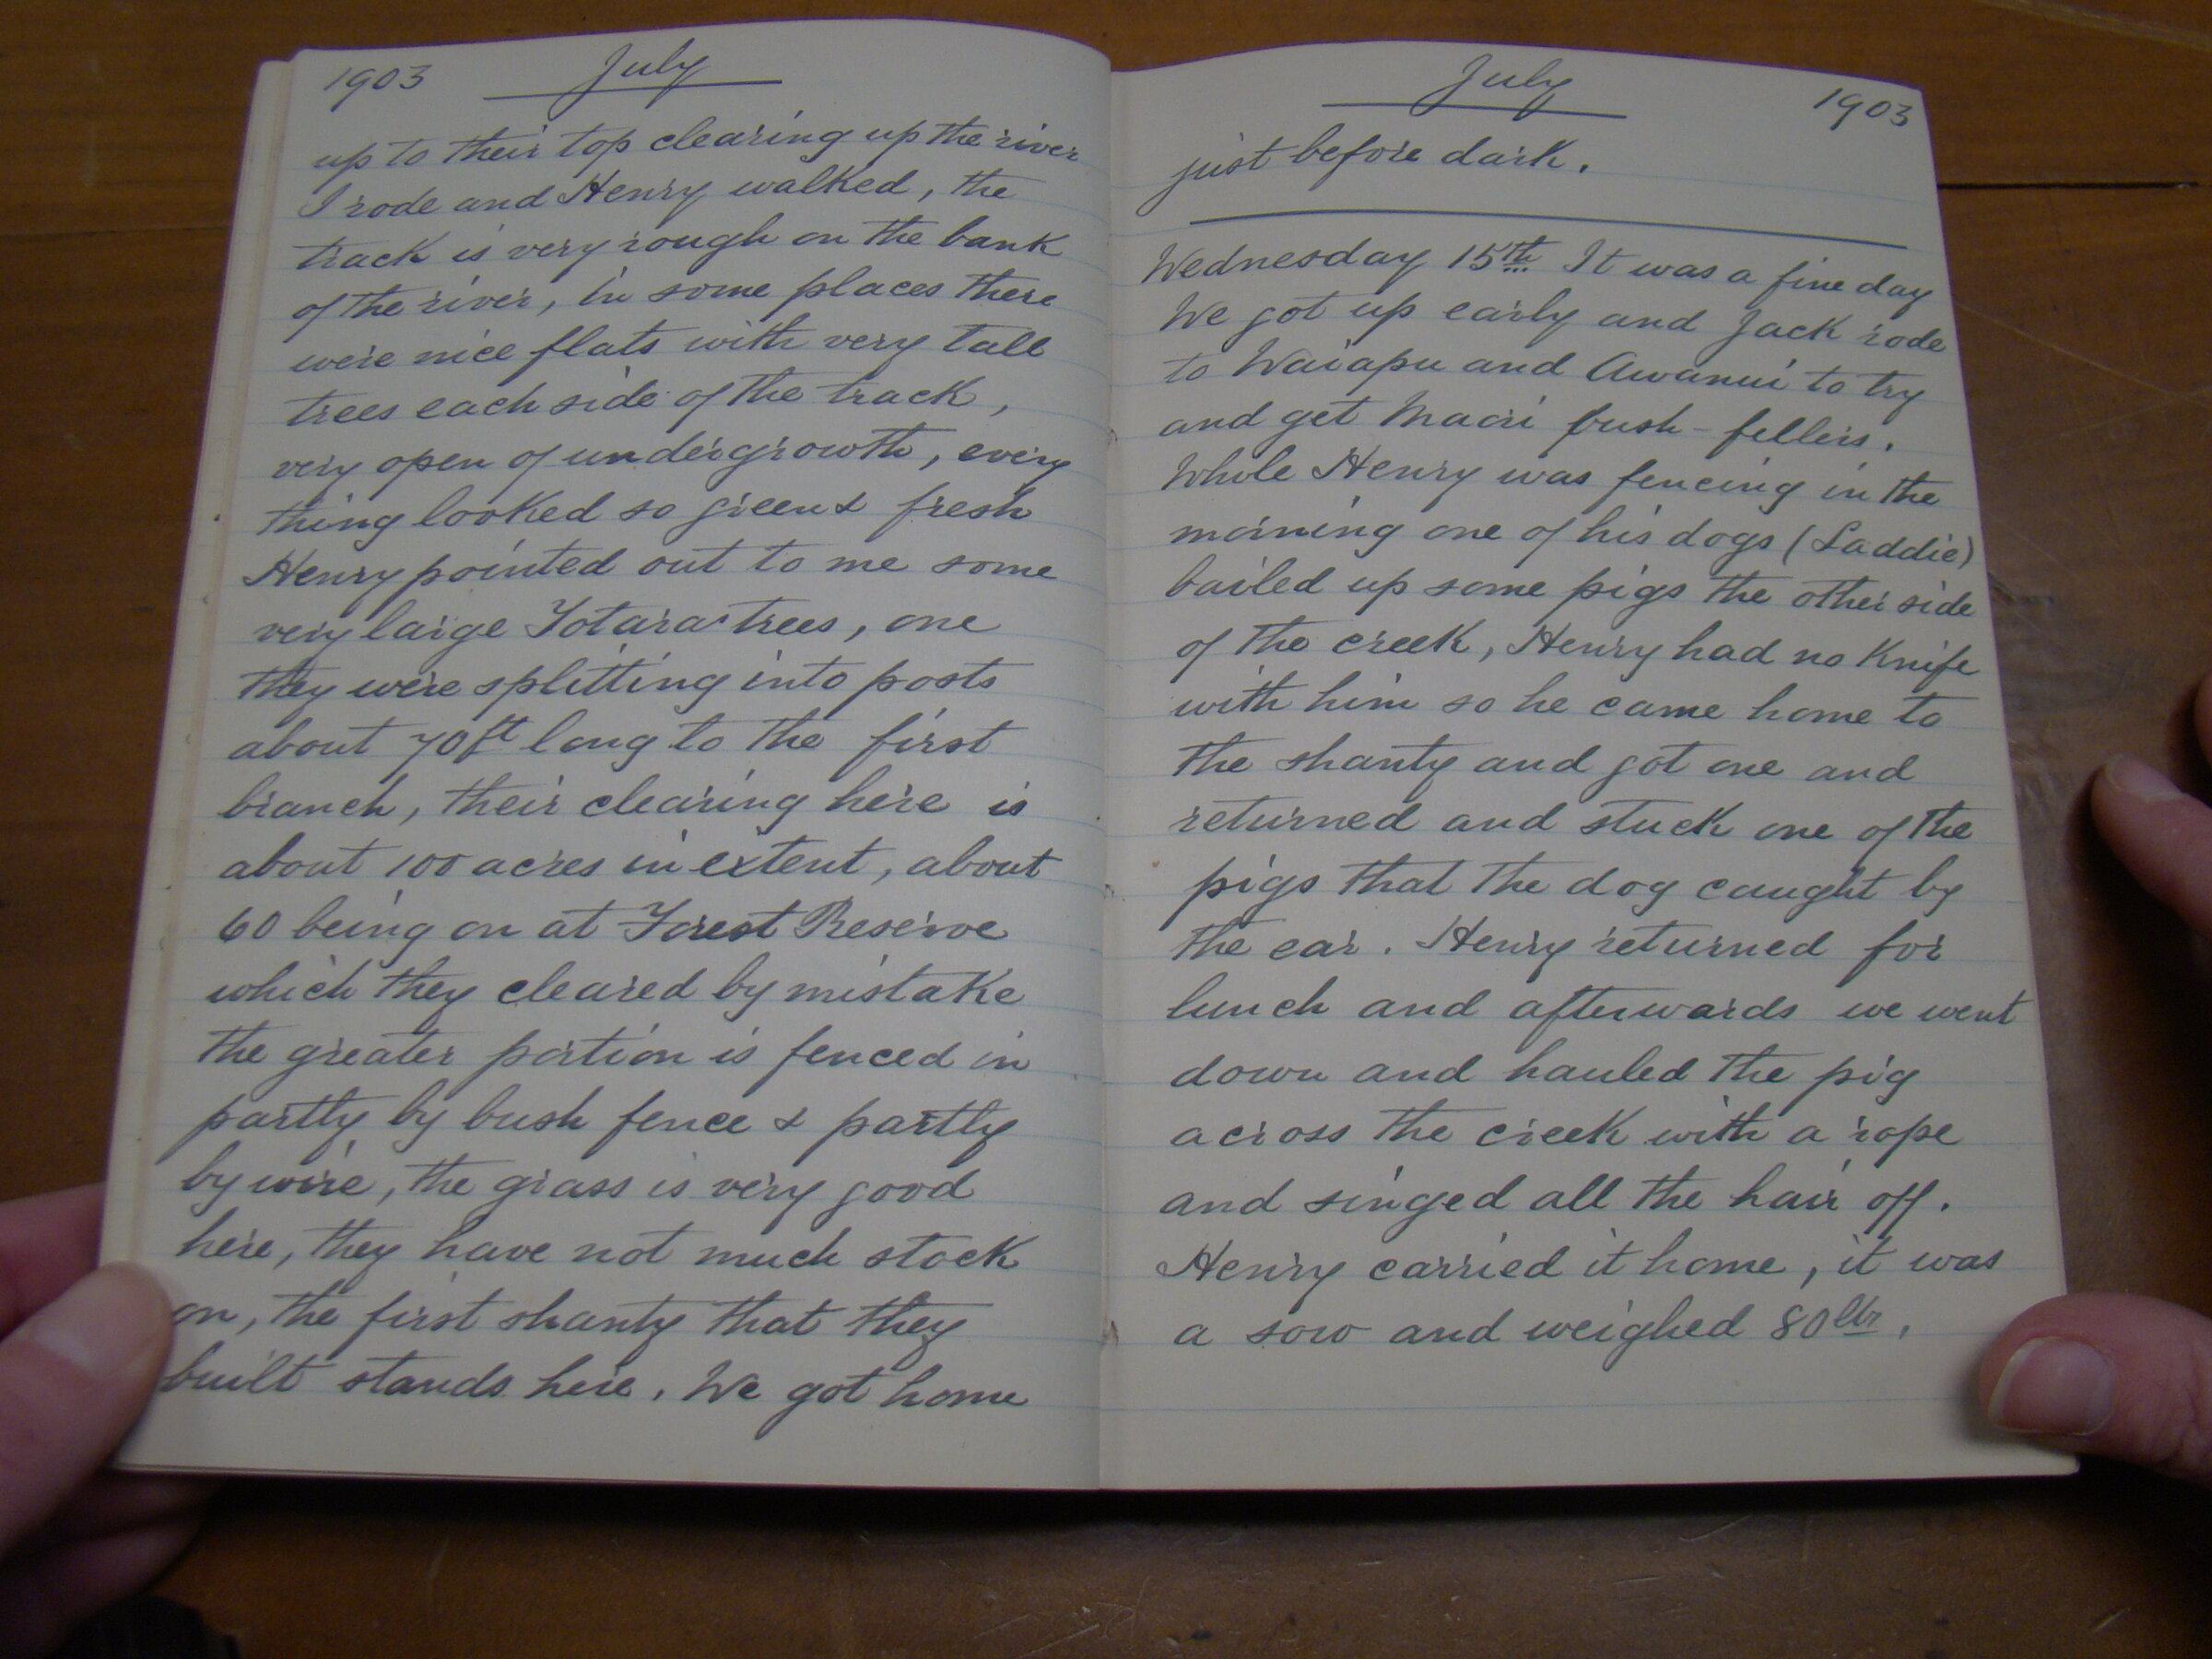 1903 July
up to their top clearing up the river
I rode and Henry walked, the
track is very rough on the bank
of the river, in some places there
were nice flats with very tall
trees each side of the track,
very open of undergrowth, every
thing looked so green & fresh
Henry pointed out to me some
very large Totara trees, one
they were splitting into posts
about 70ft long to the first
branch, their clearing here is
about 100 acres in extent, about
60 being on at Forest Reserve
which they cleared by mistake
the greater portion is fenced in
partly by bush fence & partly
by wire, the grass is very good
here, they have not much stock
on, the first shanty that they
built stands here. We got home
July 1903
just before dark.
Wednesday 15th It was a fine day
We got up early and Jack rode
to Waiapu and Awanui to try
and get Maori bush-fellers.
Whole Henry was fencing in the
morning one of his dogs (Laddie)
bailed up some pigs the other side
of the creek, Henry had no Knife
with him so he came home to
the shanty and got one and
returned and stuck one of the
pigs that the dog caught by
the ear. Henry returned for
lunch and afterwards we went
down and hauled the pig
across the creek with a rope
and singed all the hair off.
Henry carried it home, it was
a sow and weighed 80 lbs.